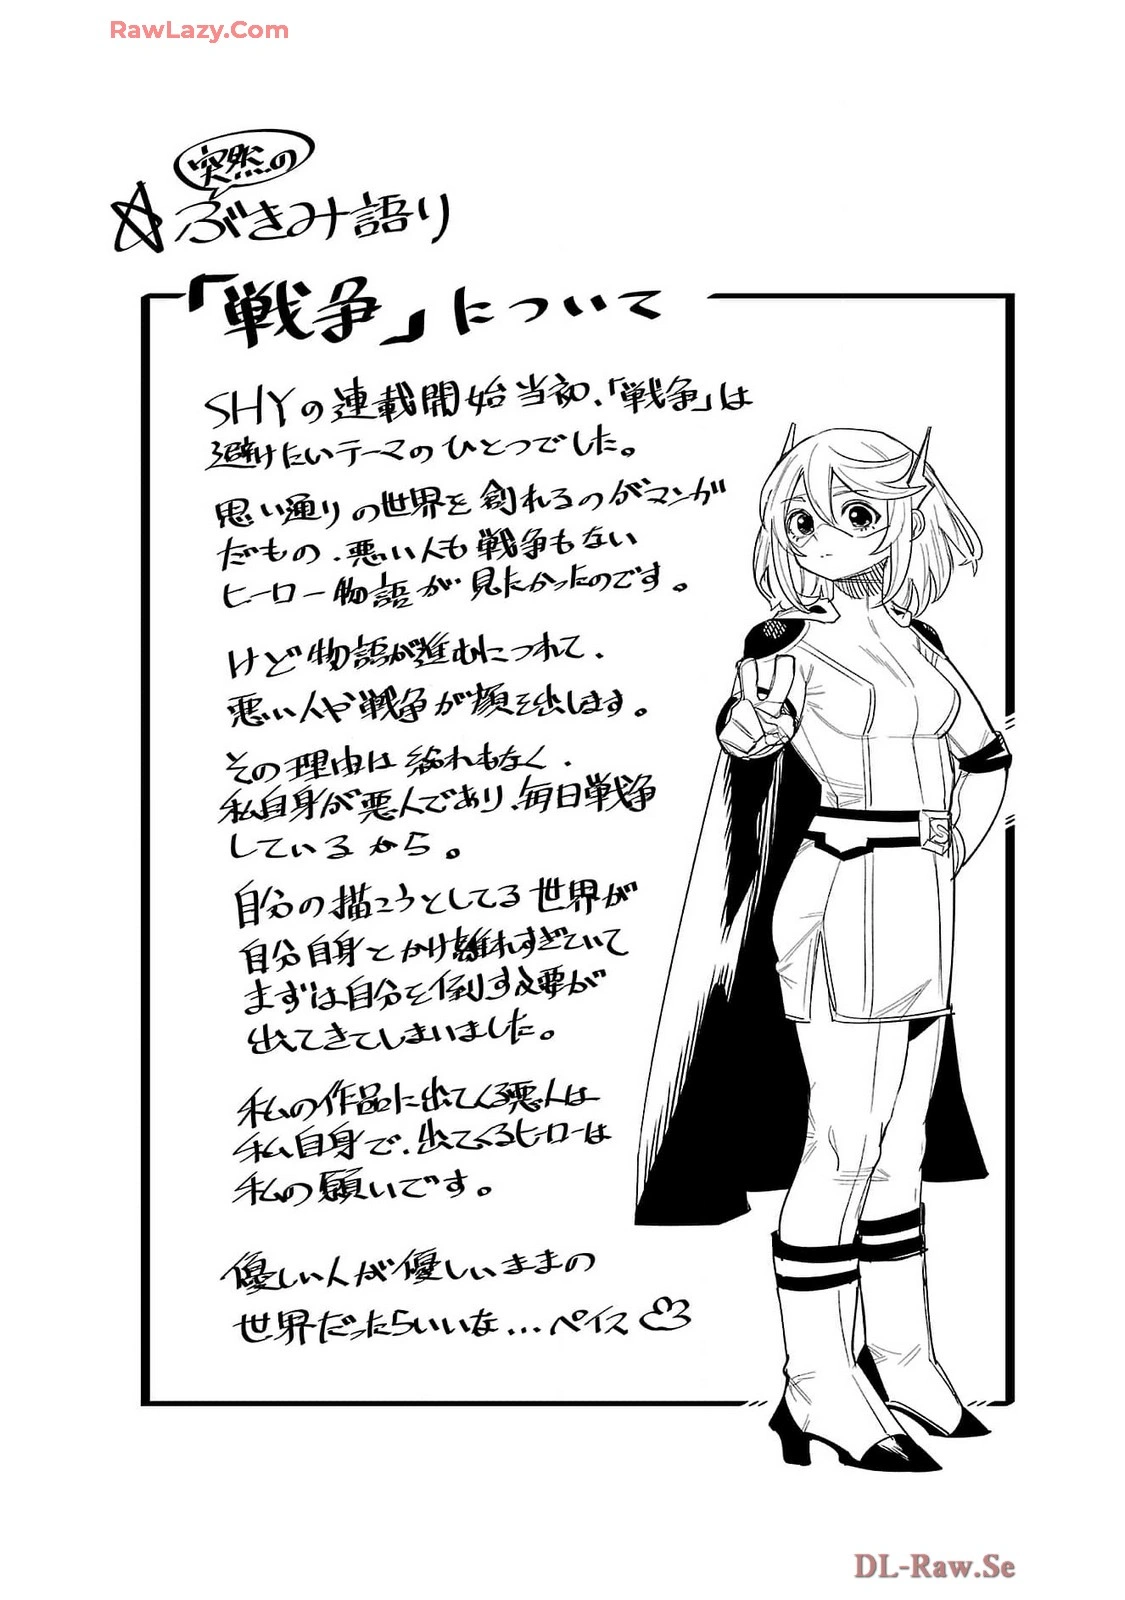 RawLazy.Com
突然の
☆ぶきみ語り
「戦争」について
SHYの連載開始当初、「戦争」は
避けたいテーマのひとつでした。
思い通りの世界を創れるのがマンガ
だもの、悪い人も戦争もない
ヒーロー物語が見たかったのです。
けど物語が進むにつれて、
悪い人や戦争が顔を出します。
その理由は紛れもなく、
私自身が悪人であり、毎日戦争
しているから。
自分の描こうとしてる世界が
自分自身とかけ離れすぎていて
まずは自分を倒す必要が
出てきてしまいました。
私の作品に出てくる悪人は
私自身で、出てくるヒーローは
私の願いです。
優しい人が優しいままの
世界だったらいいな...ペイス
S
DL-Raw.Se